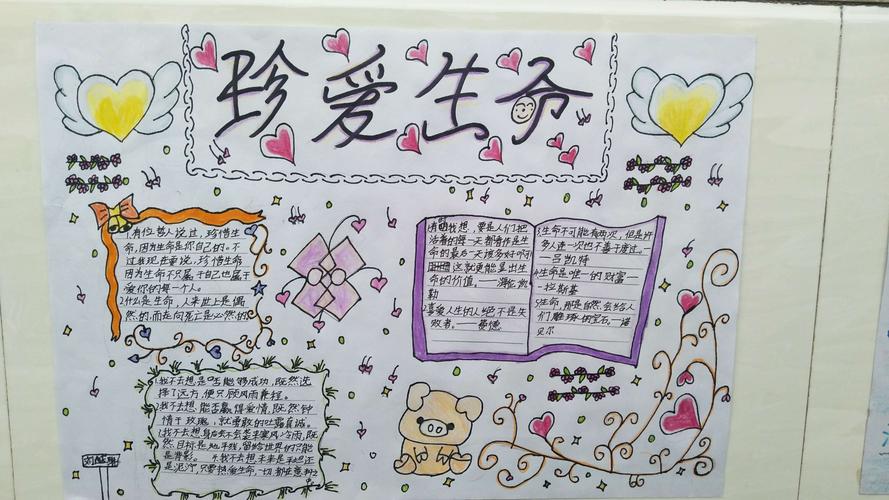 珍爱生命
1.有位哲人说过,珍惜生
命,因为生命是你自己的。不
过我现在要说,珍惜生命
因为生命不只属于自己也属于
爱你的每一个人。
2.什么是生命,人来世上是偶
然的而走向死亡是必然的
我想,要是人们把
活着的每一天都看作是生
命的最后一天该多好啊
这就更能显出生
命的价值。——海伦凯
勒
2.喜爱人生的人绝不是失
败者。——费德
3.生命不可能有两次,但是许
多人连一次也不善于度过。—
—吕凯特
4.生命是唯一的财富—
—拉斯基
5.生命,那是自然会给人
们雕琢的宝石。—诺
贝尔
1.我不去想,是否能够成功,既然选
择了远方,便只顾风雨兼程。
2.我不去想能否赢得爱情,既然钟
情于玫瑰,就勇敢的吐露真诚。
3.我不去想身后会不会袭来寒风冷雨,既
然目标是地平线,留给世界的只能
是背影。 4.我不去想未来是平坦还
是泥泞,只要热爱生命,一切都在意料之